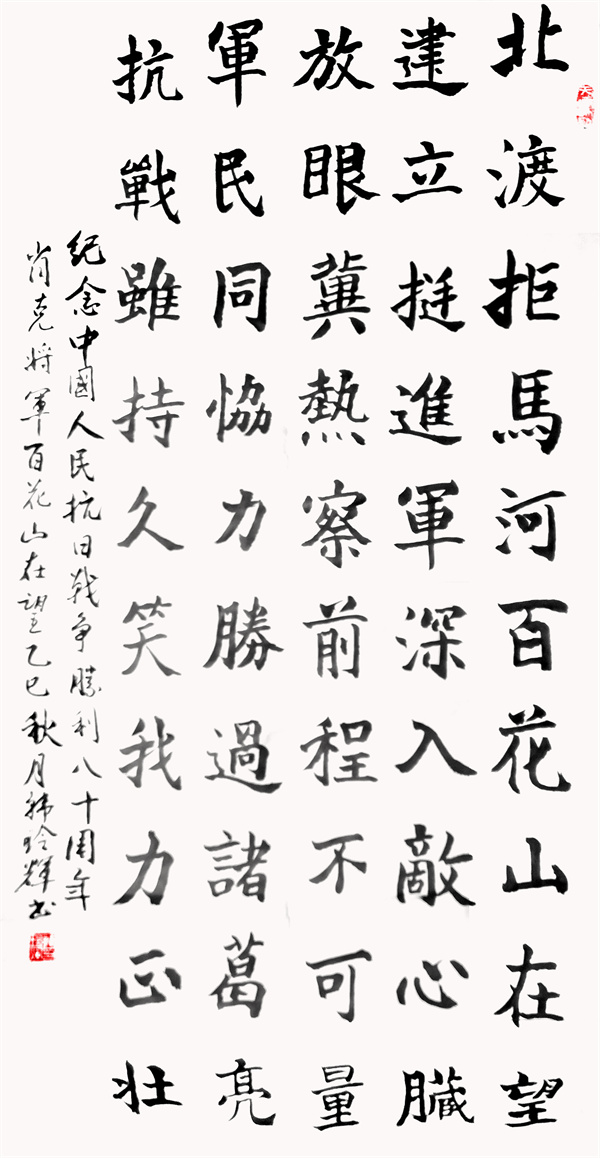 北渡拒馬河百花山在望
建立挺進軍深入敵心臟
放眼冀熱察前程不可量
軍民同協力勝過諸葛亮
抗戰雖持久笑我力正壯
紀念中國人民抗日戰爭勝利八十周年
肖克將軍百花山在望乙巳秋月韩玲輝书